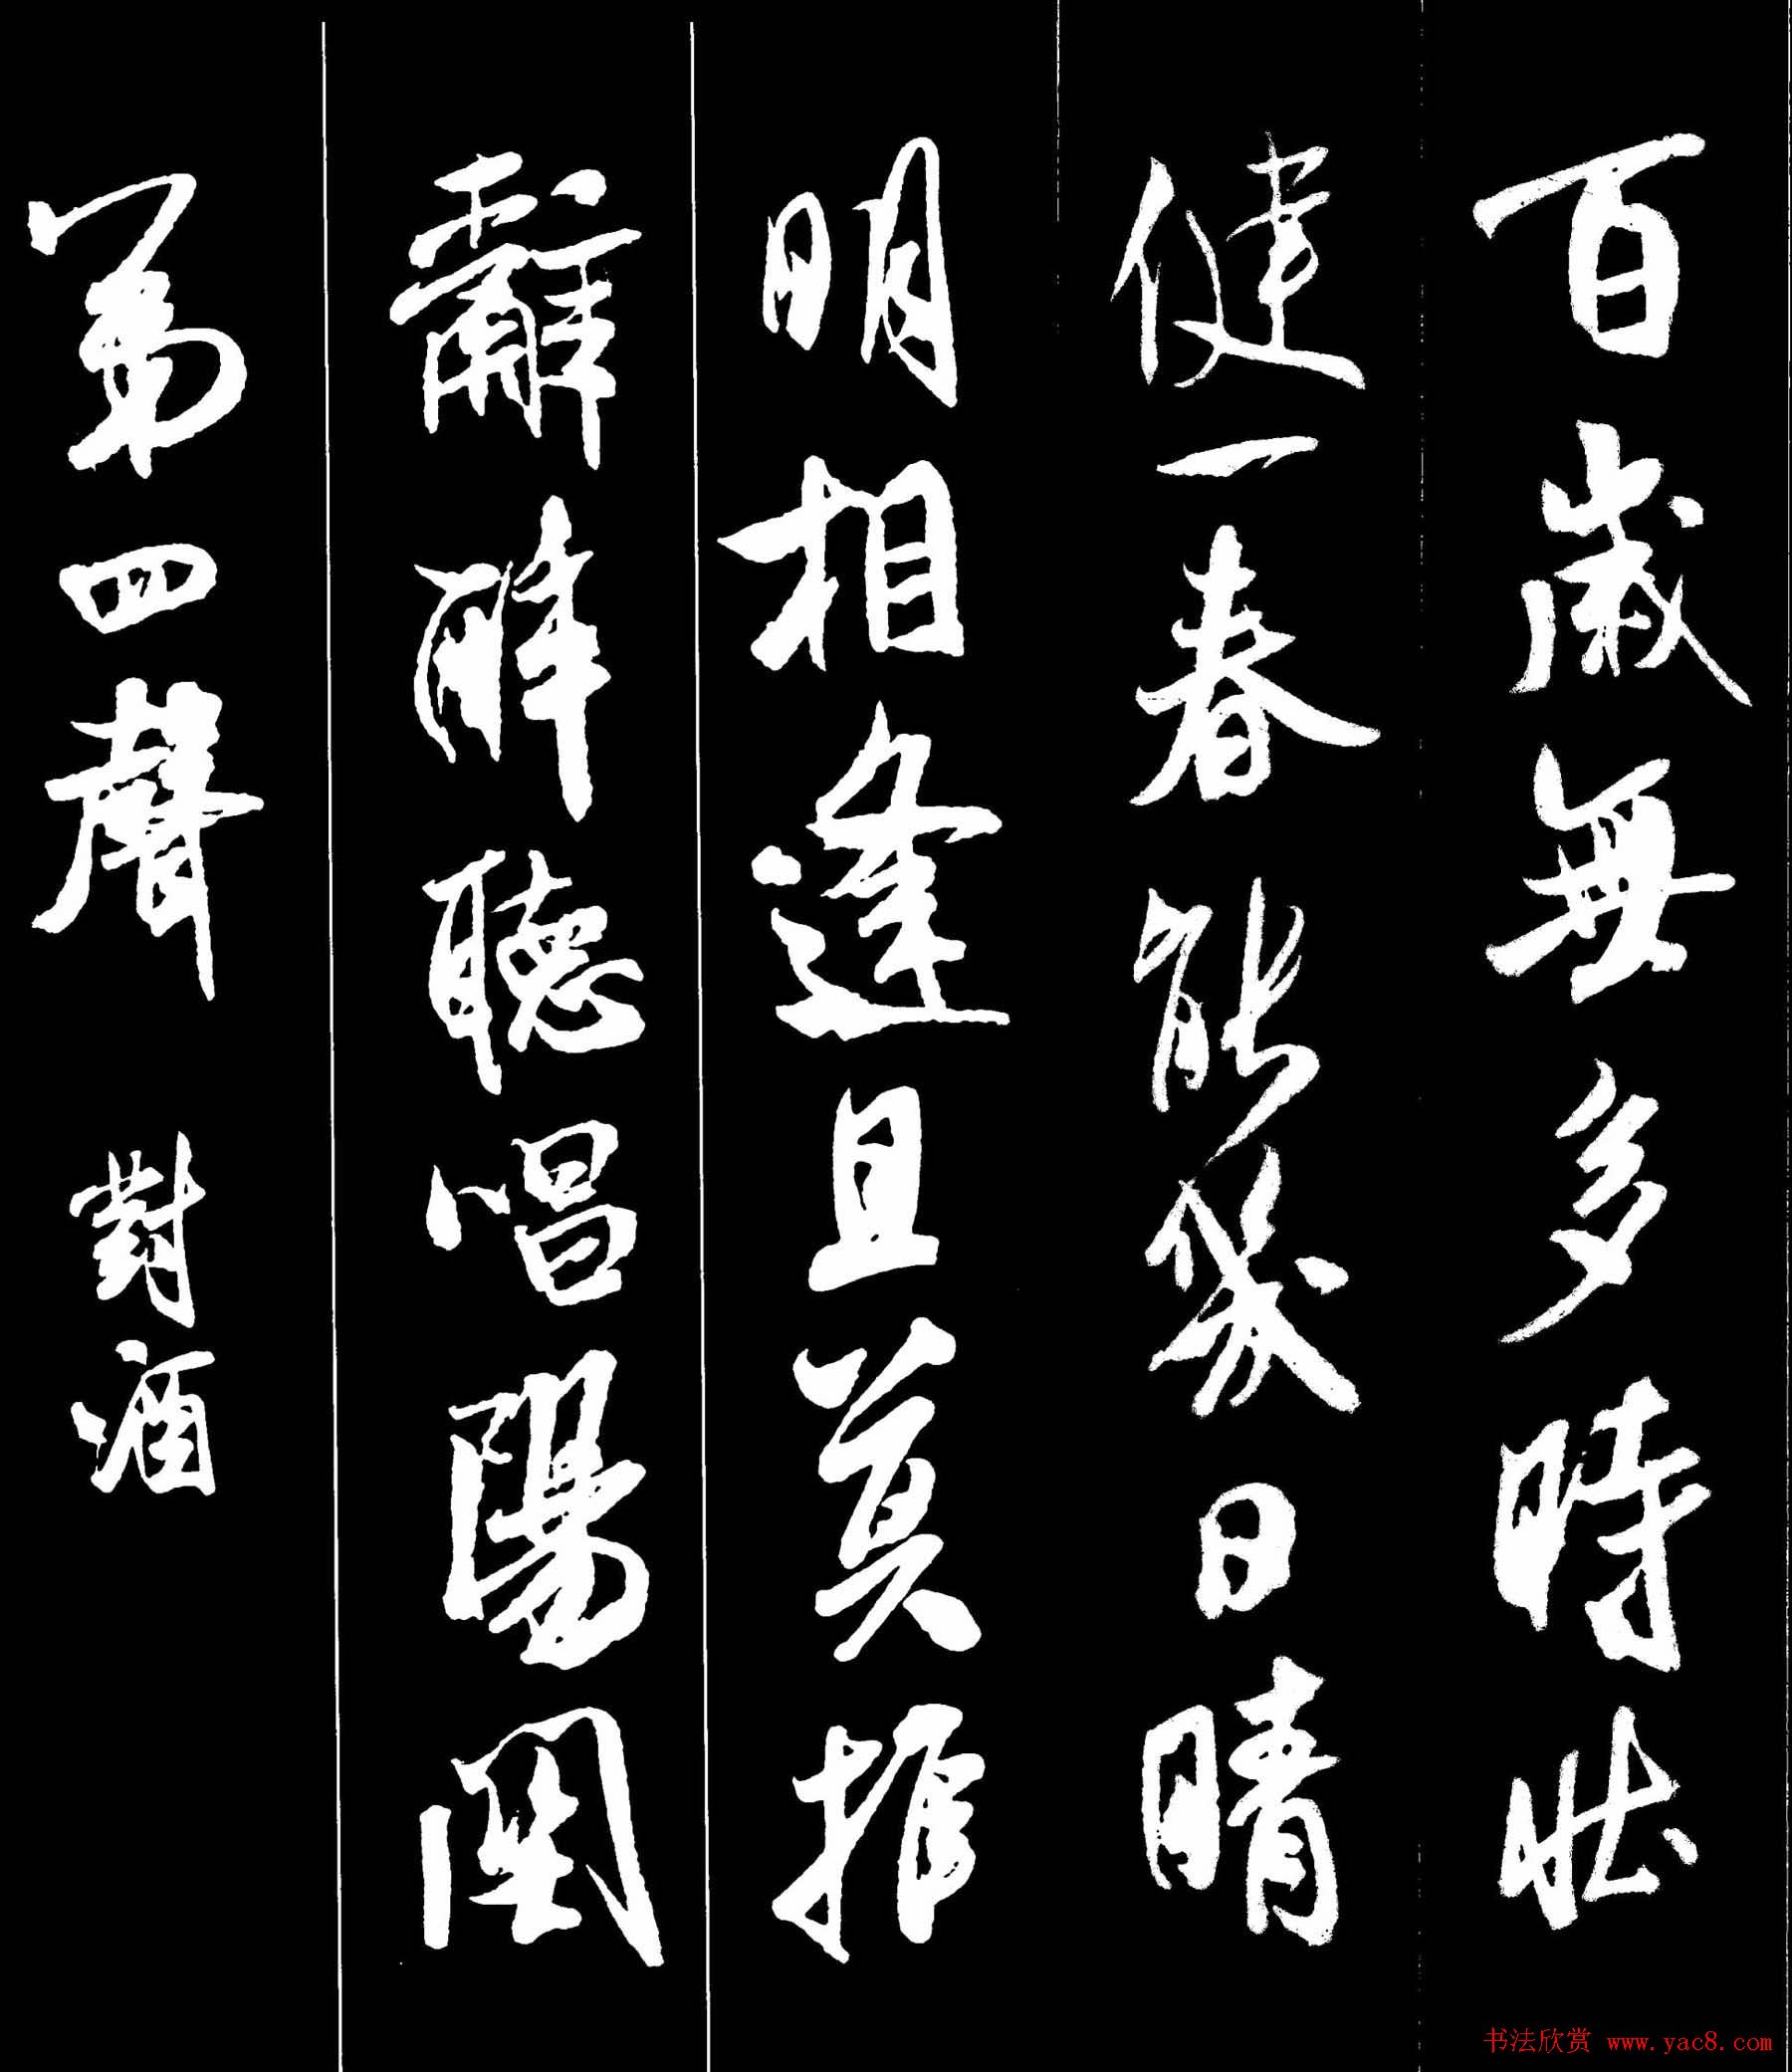 百歲無多時壯
健一春能幾日晴
明相逢且莫推
辭醉聽唱陽関
第四聲 對酒
书法欣赏 www.yac8.com